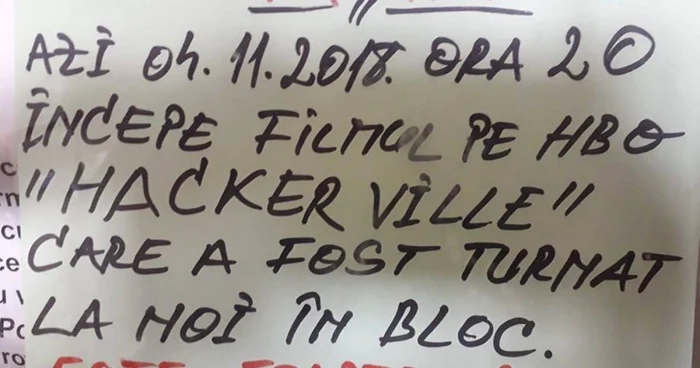 AZI 04.11.2018. ORA 20
ÎNCEPE FILMUL PE HBO
"HACKER VILLE"
CARE A FOST TURNAT
LA NOI ÎN BLOC.